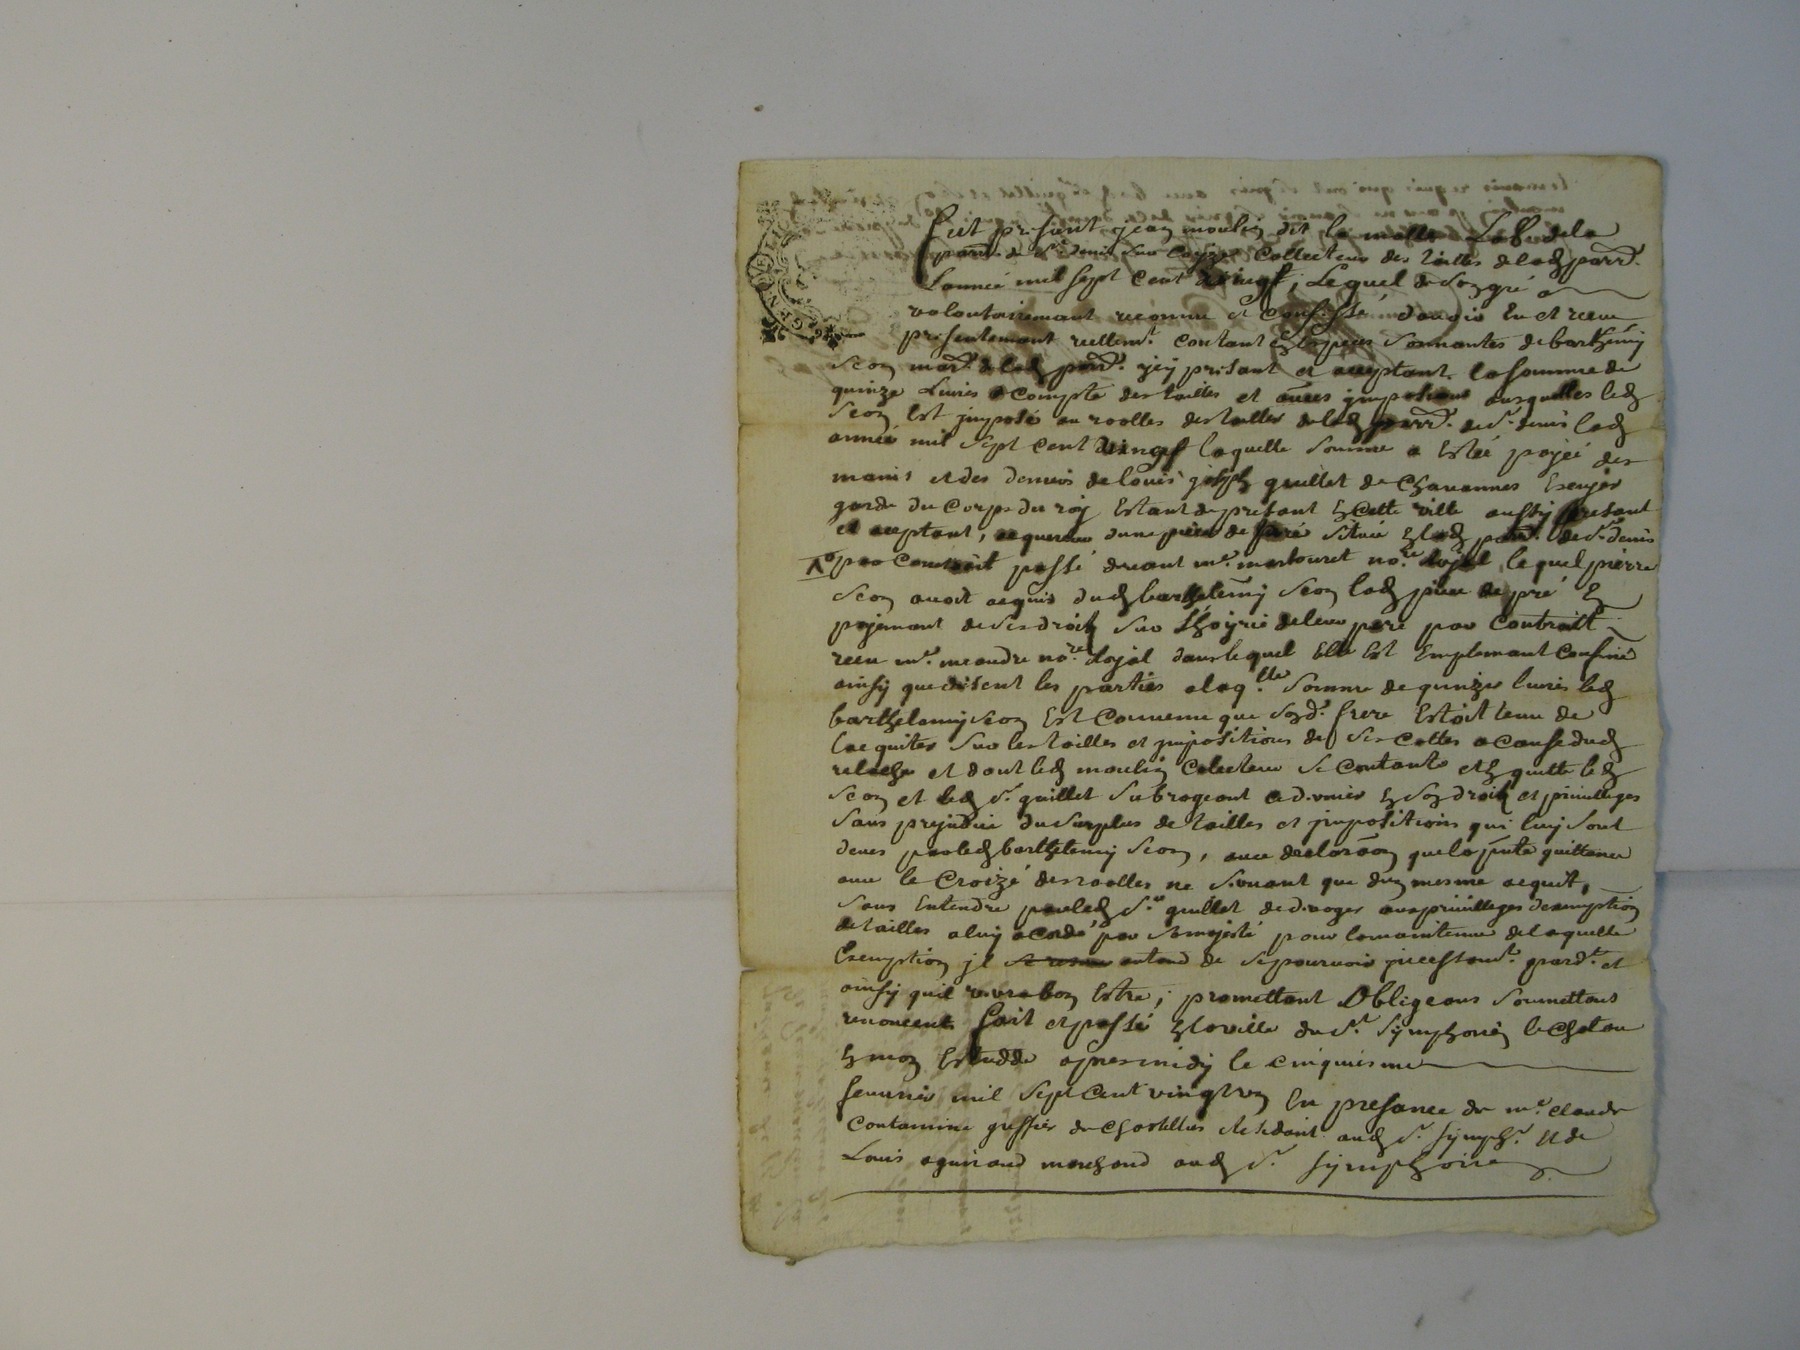 fut present jean moulin dit la motte Lab. de la
parr. de St denis sur Coyse Collecteur des tailles de lad parr.
Lannée mil sept cent vingt, Lequel de son gré
volontairemant reconnu et confessé dauoir eu et receu
presentemant reellemt. contant en Especes sonnantes de barthemy
Seon mard. de lad parr. jcy présant et aceptant la somme de
quinze Livres a Compte des tailles et aues jmpositions ausquelles led
Seon Est jmposé au roolles des tailles de lad parr. de St. denis lad
année mil sept cent vingt laquelle somme a Estée payée des
mains et des deniers de louis joseph guillet de Chauannes Escuyer
garde du Corps du roy Estant de présant en Cette ville aussy présant
et aceptant, aquereur dune piece de pré située en lad parr. de St denis
par Contrait passé deuant me. martouret nore. Royal lequel pierre
Seon auoit aquis dud barthelemy Seon lad piece de pré En
pajemant de ses droits sur Lhoyrie de leur pere par Contrait
receu me. meandre nore. Royal dans lequel Elle Est Emplemant Confiné
ainsy que disent les parties a laqlle. Somme de quinze liures led
barthelemy Seon Est Conuenu que sond. frere Estoit tenu de
lacquiter sur les tailles et jmpositions de ses cottes a cause dud
relache et dont led moulin Colecteur se contante et en quitte led
Seon et led Sr. guillet subrogeant ce dernier en son droit et priuilleges
sans prejudice du surplus de tailles et jmpositions qui luy sont
deues par led barthelemy Seon, auec declaraon que la pnte quittance
auec le Croizé des roolles ne seruant que dun mesme aquit,
sans Entendre par led Sr. guillet de deroger aux priuilleges dexemption
de tailles a luy acordé par sa majesté pour la maintenue de laquelle
Exemption jl entend de se pourvoir jncessamt. et
ainsy quil verra bon Estre, promettant Obligeans soumettans
renonceant fait et passé en la ville de St. Symphorien le Chateau
En mon Estudde apres midy le cinquiesme
feurier mil sept Cent vingt un En presance de me. claude
Contamine greffier de Chatellus residant aud St. Symph. et de
Louis aguiraud marchand aud St. Symphorien